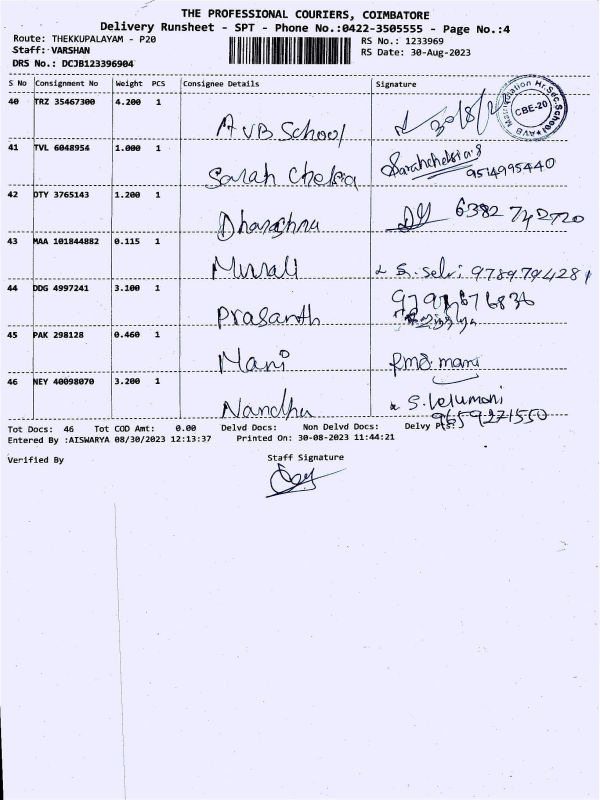 THE PROFESSIONAL COURIERS, COIMBATORE
Delivery Runsheet - SPT - Phone No.:0422-3505555 - Page No.:4
Route: THEKKUPALAYAM - P20
RS No.: 1233969
Staff: VARSHAN
RS Date: 30-Aug-2023
DRS No.: DCJB123396904
S No Consignment No Weight PCS Consignee Details Signature
40 TRZ 35467300 4.200 1 AVB School 30/8/2
CBE-20
41 TVL 6048954 1.000 1 Sarah Chelsia Sarahchelsia.S
9514995440
42 DTY 3765143 1.200 1 Dharshna 6382 742720
43 MAA 101844882 0.115 1 Murali S. Selvi 9789794281
44 DDG 4997241 3.100 1 Prasanth
45 PAK 298128 0.460 1 Mani mani
46 NEY 40098070 3.200 1 Nandhu S. Velumani
9659271550
Tot Docs: 46 Tot COD Amt: 0.00 Delvd Docs: Non Delvd Docs: Delvy
Entered By :AISWARYA 08/30/2023 12:13:37 Printed On: 30-08-2023 11:44:21
Verified By Staff Signature